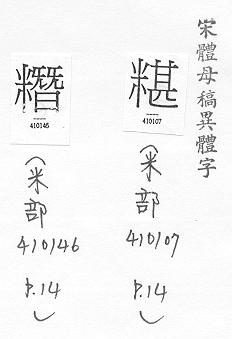 宋體母稿異體字
糂
410107
(米部
410107
P.14)
糣
410146
(米部
410146
P.14)